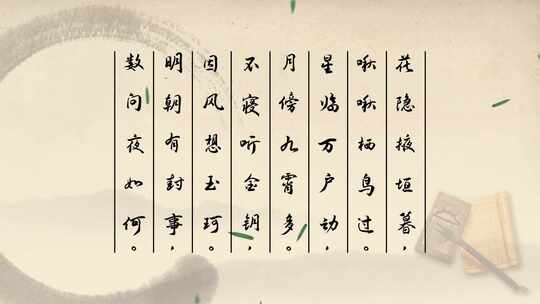 花隐掖垣暮，
啾啾栖鸟过。
星临万户动，
月傍九霄多。
不寝听金钥，
因风想玉珂。
明朝有封事，
数问夜如何。